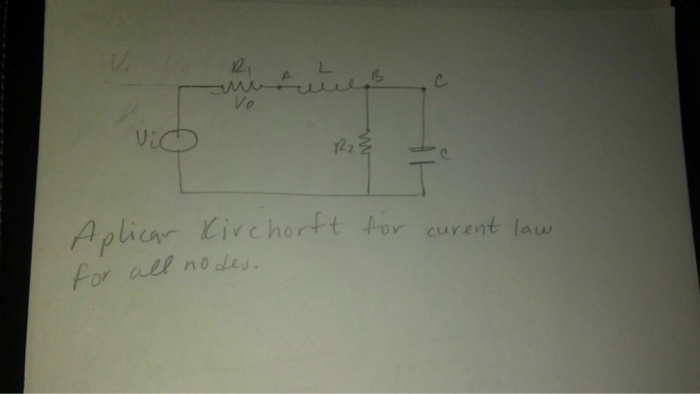 R1 A L B C
Vo
Vi R2 c
Aplicar Kirchorft for curent law
for all nodes.